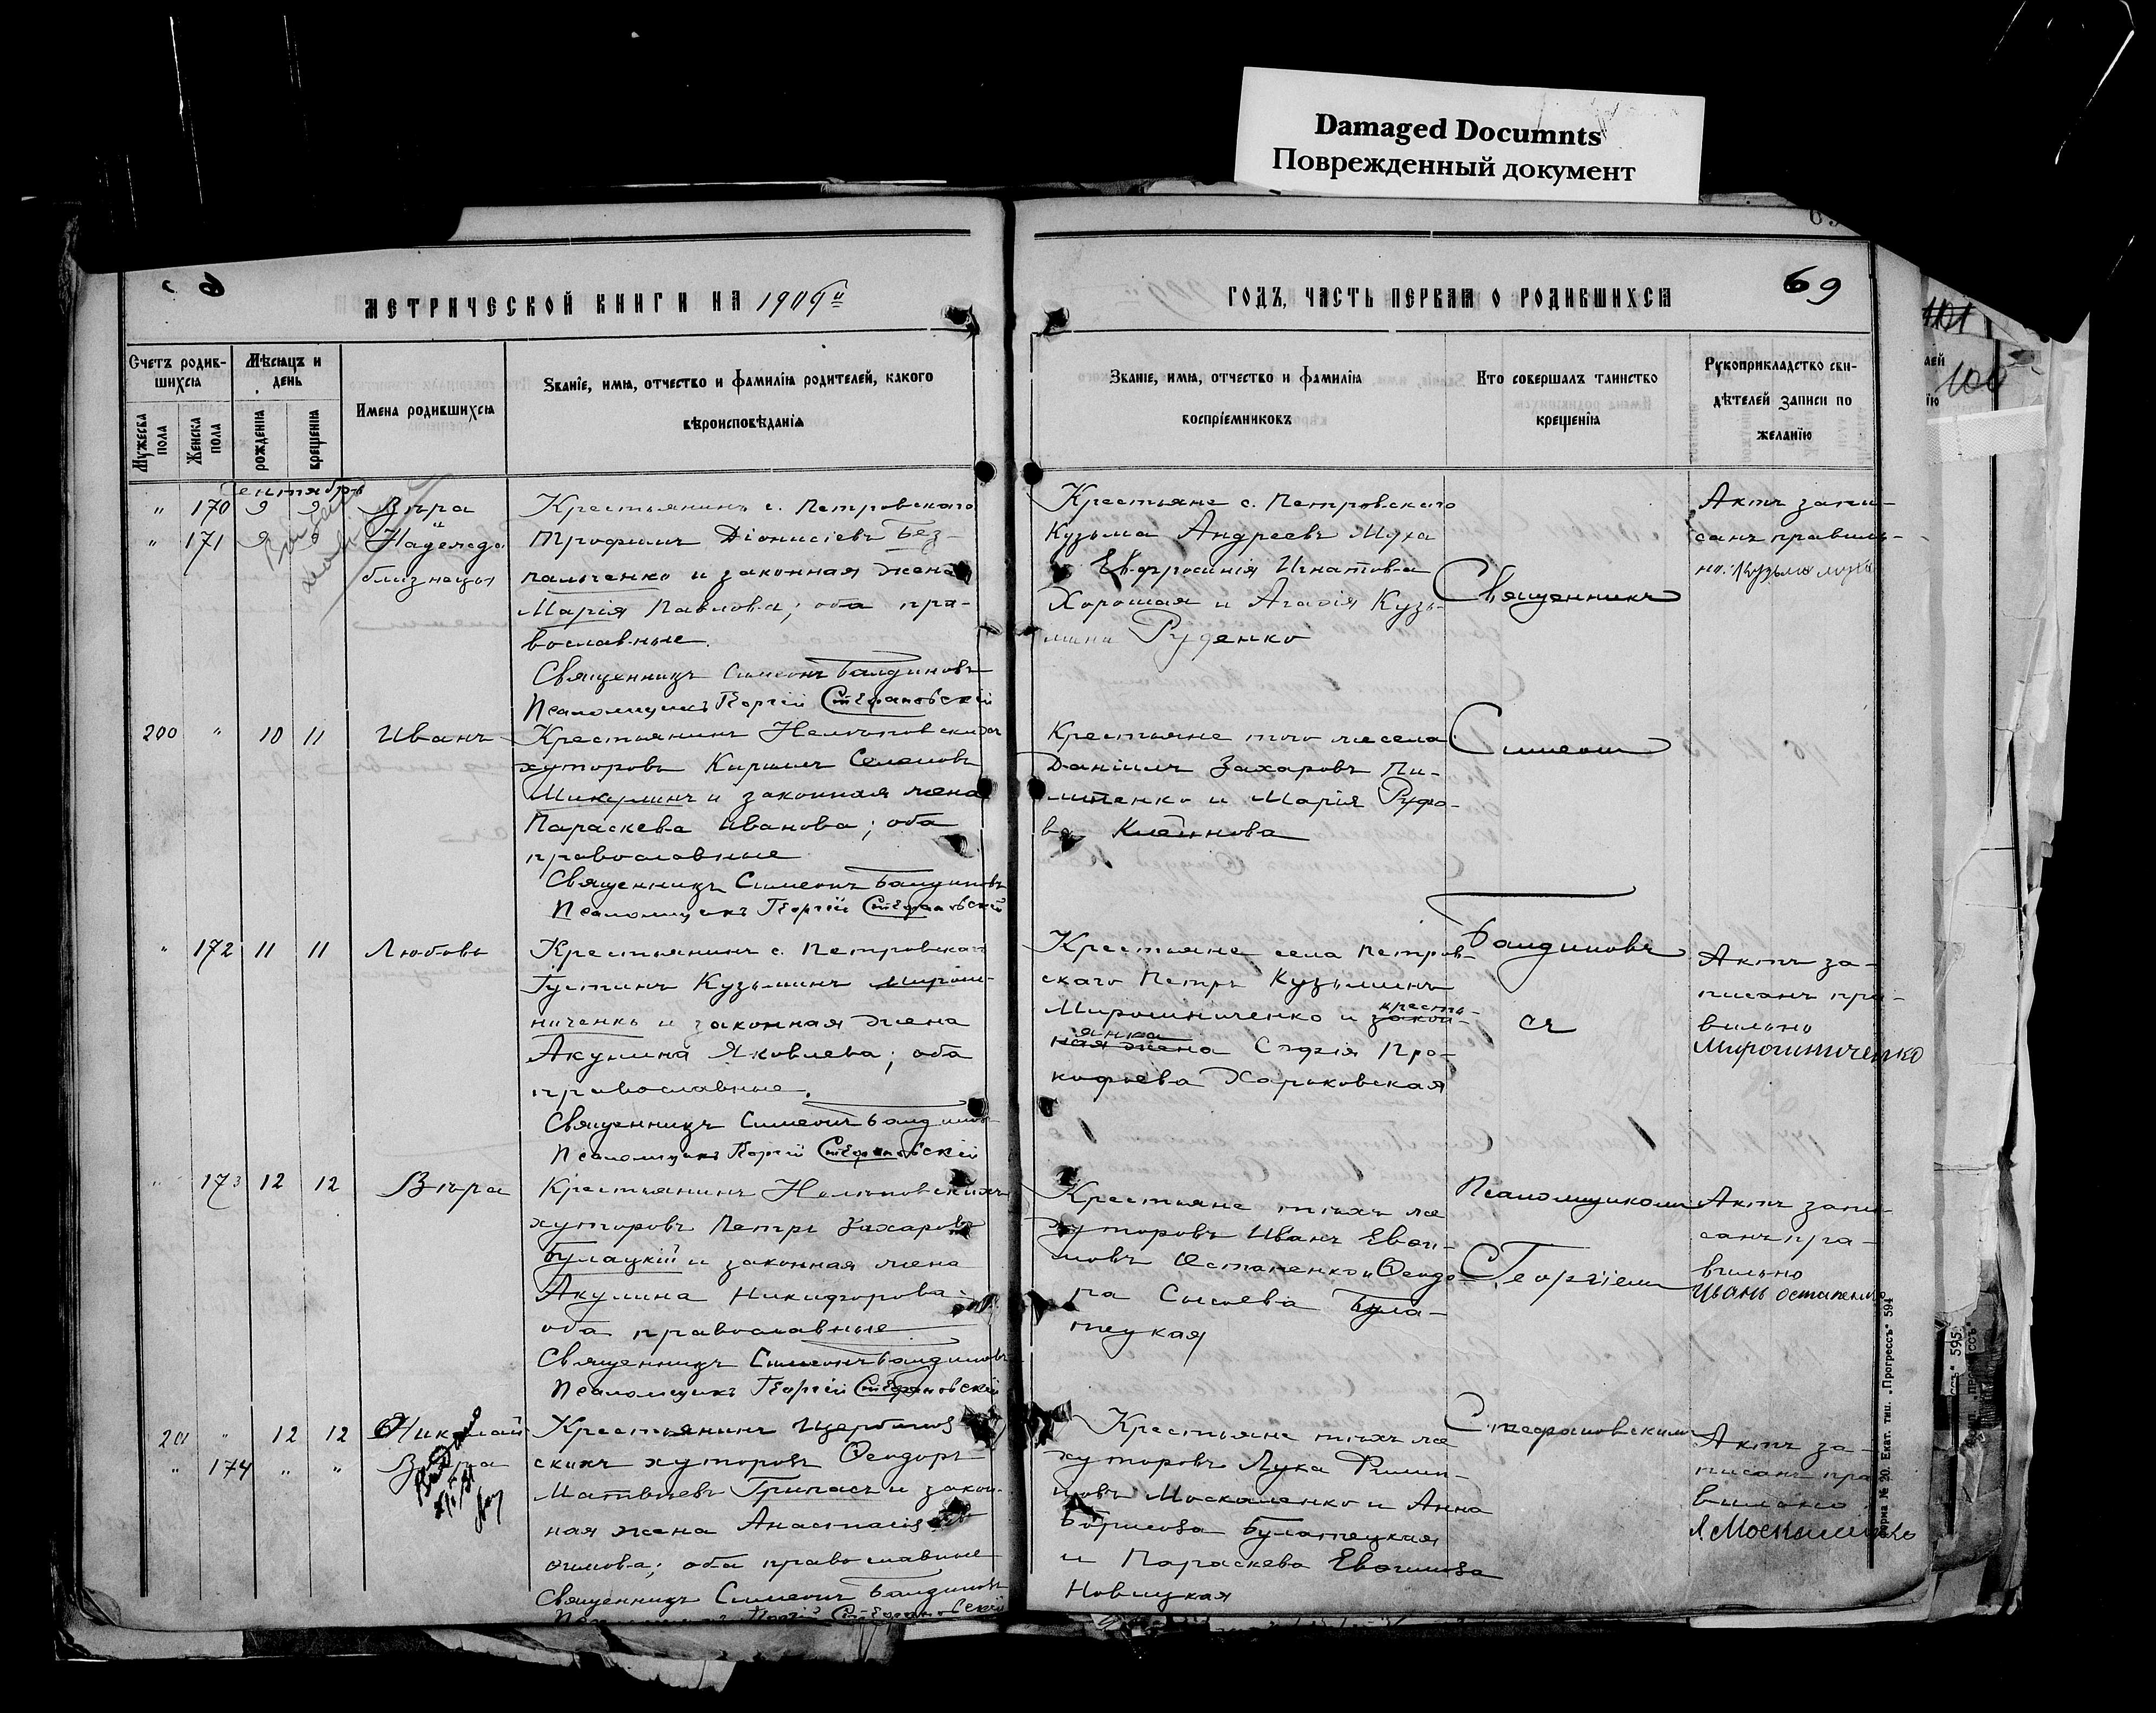 Damaged Documnts
Поврежденный документ
69
МЕТРИЧЕСКОЙ КНИГИ НА 1909й
ГОДЪ, ЧАСТЬ ПЕРВАЯ О РОДИВШИХСЯ
Счетъ родившихся
Мужеска пола
Женска пола
Мѣсяцъ и день
рожденія
крещенія
Имена родившихся
Званіе, имя, отчество и фамилія родителей, какого
вѣроисповѣданія
Званіе, имя, отчество и фамилія
воспріемниковъ
Кто совершалъ таинство
крещенія
Рукоприкладство сви-
дѣтелей записи по
желанію
Сентябрь
" 170 9 9 Вѣра
" 171 9 9 Надежда
близнецы
Крестьянинъ с. Петровскаго
Трофимъ Діонисіевъ Без-
пальченко и законная жена
Марія Павлова; оба пра-
вославные.
Священникъ Симеонъ Балдиновъ
Псаломщикъ Георгій Стефановскій
Крестьяне с. Петровскаго
Кузьма Андреевъ Муха
Евфросинія Игнатова
Хорошая и Агафія Кузь-
мина Руденко
Священникъ
Актъ запи-
санъ правиль-
но. Кузьма Муха
200 " 10 11 Иванъ
Крестьянинъ
хуторовъ Кирилъ Семеновъ
Микулинъ и законная жена
Параскева Иванова; оба
православные
Священникъ Симеонъ Балдиновъ
Псаломщикъ Георгій Стефановскій
Крестьяне того же села
Даніилъ Захаровъ Пи-
липенко и Марія
Симеонъ
" 172 11 11 Любовь
Крестьянинъ с. Петровскаго
Іустинъ Кузьминъ Мирош-
ниченко и законная жена
Акулина Яковлева; оба
православные.
Священникъ Симеонъ Балдиновъ
Псаломщикъ Георгій Стефановскій
Крестьяне села Петров-
скаго Петръ Кузьминъ
Мирошниченко и закон- кресть-
ная жена янка Софія Про-
кофьева Харьковская
Балдиновъ
съ
Актъ за-
писанъ пра-
вильно
Мирошниченко
" 173 12 12 Вѣра
Крестьянинъ
хуторовъ Петръ Захаровъ
Булацкій и законная жена
Акулина Никифорова
оба православные
Священникъ Симеонъ Балдиновъ
Псаломщикъ Георгій Стефановскій
Крестьяне тѣхъ же
хуторовъ Иванъ Евѳи-
мовъ Остапенко и Ѳеодо-
ра Сысоева Була-
тецкая
Псаломщикомъ
Георгіемъ
Актъ запи-
санъ пра-
вильно
Иванъ Остапенко
201 " 12 12 Николай
" 174 " " Вѣра
Крестьянинъ Щербинов-
скихъ хуторовъ Ѳеодоръ
Матвѣевъ Грипасъ и закон-
ная жена Анастасія
ѳимова; оба православные
Священникъ Симеонъ Балдиновъ
Псаломщикъ Георгій Стефановскій
Крестьяне тѣхъ же
хуторовъ Лука Филип-
повъ Москаленко и Анна
Борисова Булатецкая
и Параскева Евѳимова
Новицкая
Стефановскимъ
Актъ за-
писанъ пра
вильно
Л Москаленко
Форма № 20. Екат. тип. „Прогрессъ" 594